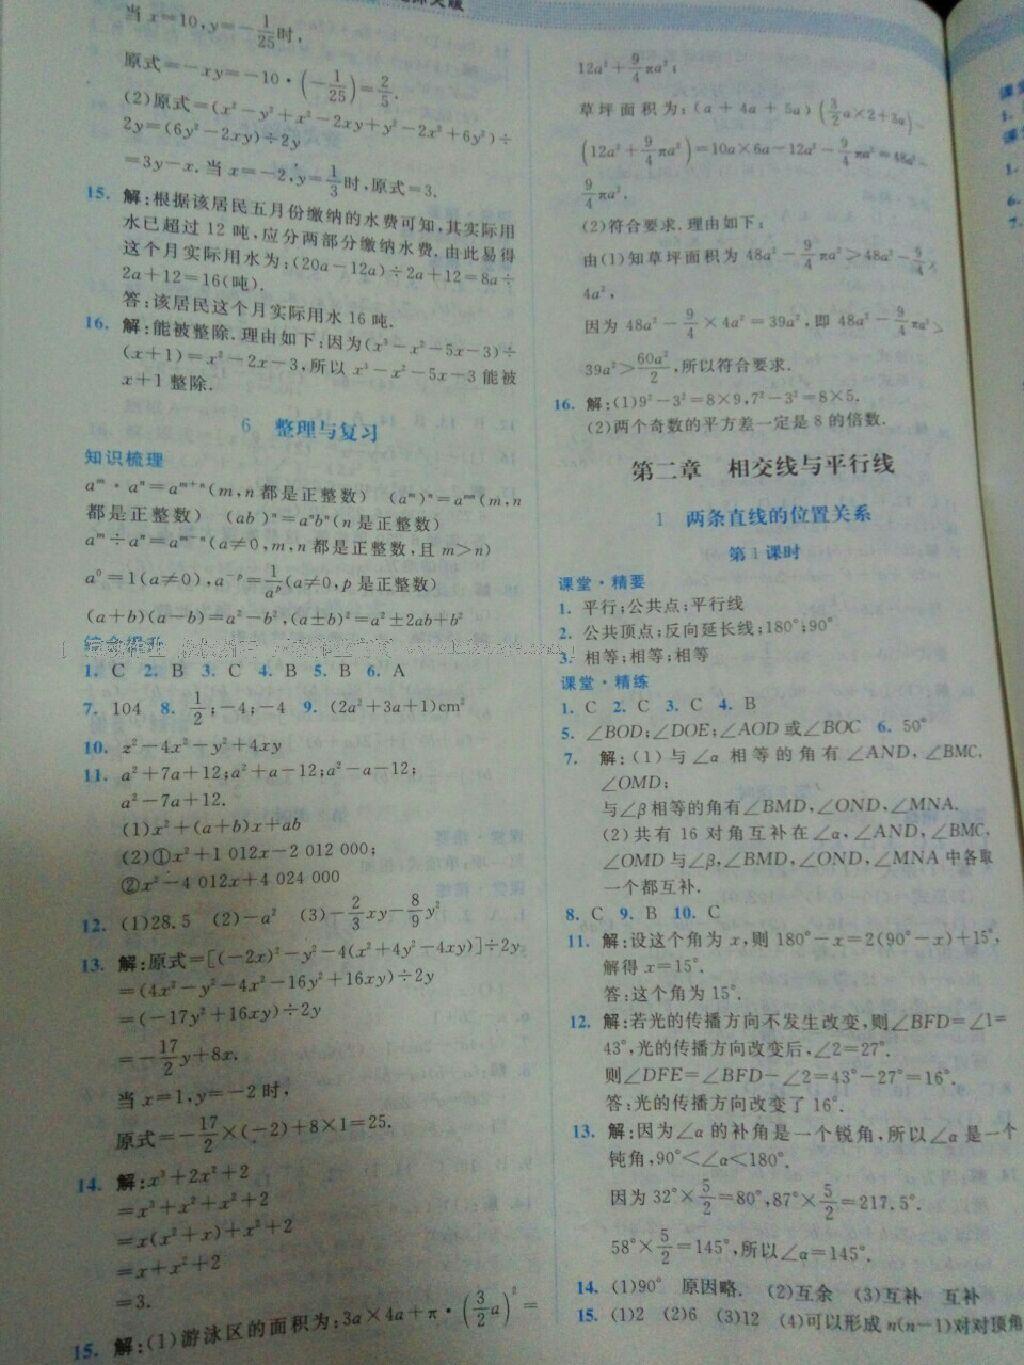 当x=10,y=-1/25时,
原式=-xy=-10·(-1/25)=2/5.
(2)原式=(x²-y²+x²-2xy+y²-2x²+6y²)÷
2y=(6y²-2xy)÷2y
=3y-x.当x=-2,y=1/3时,原式=3.
15. 解:根据该居民五月份缴纳的水费可知,其实际用
水已超过12吨,应分两部分缴纳水费.由此易得
这个月实际用水为:(20a-12a)÷2a+12=8a÷
2a+12=16(吨).
答:该居民这个月实际用水16吨.
16. 解:能被整除.理由如下:因为(x³-x²-5x-3)÷
(x+1)=x²-2x-3,所以x³-x²-5x-3能被
x+1整除.
6 整理与复习
知识梳理
aᵐ·aⁿ=aᵐ⁺ⁿ(m,n都是正整数) (aᵐ)ⁿ=aᵐⁿ(m,n
都是正整数) (ab)ⁿ=aⁿbⁿ(n是正整数)
aᵐ÷aⁿ=aᵐ⁻ⁿ(a≠0,m,n都是正整数,且m>n)
a⁰=1(a≠0),a⁻ᵖ=1/aᵖ(a≠0,p是正整数)
(a+b)(a-b)=a²-b²,(a±b)²=a²±2ab+b²
1. C 2. B 3. C 4. B 5. B 6. A
7. 104 8. 1/2;-4;-4 9. (2a²+3a+1)cm²
10. z²-4x²-y²+4xy
11. a²+7a+12;a²+a-12;a²-a-12;
a²-7a+12.
(1)x²+(a+b)x+ab
(2)①x²+1 012x-2 012 000;
②x²-4 012x+4 024 000
12. (1)28.5 (2)-a² (3)-2/3xy-8/9y²
13. 解:原式=[(-2x)²-y²-4(x²+4y²-4xy)]÷2y
=(4x²-y²-4x²-16y²+16xy)÷2y
=(-17y²+16xy)÷2y
=-17/2y+8x.
当x=1,y=-2时,
原式=-17/2×(-2)+8×1=25.
14. 解:x³+2x²+2
=x³+x²+x²+2
=x(x²+x)+x²+2
=x+x²+2
=3.
15. 解:(1)游泳区的面积为:3a×4a+π·(3/2a)²=
12a²+9/4πa²;
草坪面积为:(a+4a+5a)(3/2a×2+3a)-
(12a²+9/4πa²)=10a×6a-12a²-9/4πa²=48a²-
9/4πa².
(2)符合要求.理由如下:
由(1)知草坪面积为48a²-9/4πa²>48a²-9/4×
4a²,
因为48a²-9/4×4a²=39a²,即48a²-9/4πa²>
39a²>60a²/2,所以符合要求.
16. 解:(1)9²-3²=8×9,7²-3²=8×5.
(2)两个奇数的平方差一定是8的倍数.
第二章 相交线与平行线
1 两条直线的位置关系
第1课时
课堂·精要
1. 平行;公共点;平行线
2. 公共顶点;反向延长线;180°;90°
3. 相等;相等;相等
课堂·精练
1. C 2. C 3. C 4. B
5. ∠BOD;∠DOE;∠AOD或∠BOC 6. 50°
7. 解:(1)与∠α相等的角有∠AND,∠BMC,
∠OMD;
与∠β相等的角有∠BMD,∠OND,∠MNA.
(2)共有16对角互补在∠α,∠AND,∠BMC,
∠OMD与∠β,∠BMD,∠OND,∠MNA中各取
一个都互补.
8. C 9. B 10. C
11. 解:设这个角为x,则180°-x=2(90°-x)+15°,
解得x=15°.
答:这个角为15°.
12. 解:若光的传播方向不发生改变,则∠BFD=∠1=
43°,光的传播方向改变后,∠2=27°.
则∠DFE=∠BFD-∠2=43°-27°=16°.
答:光的传播方向改变了16°.
13. 解:因为∠α的补角是一个锐角,所以∠α是一个
钝角,90°<∠α<180°.
因为32°×5/2=80°,87°×5/2=217.5°.
58°×5/2=145°,所以∠α=145°.
14. (1)90° 原因略. (2)互余 (3)互补 互补
15. (1)2 (2)6 (3)12 (4)可以形成n(n-1)对对顶角